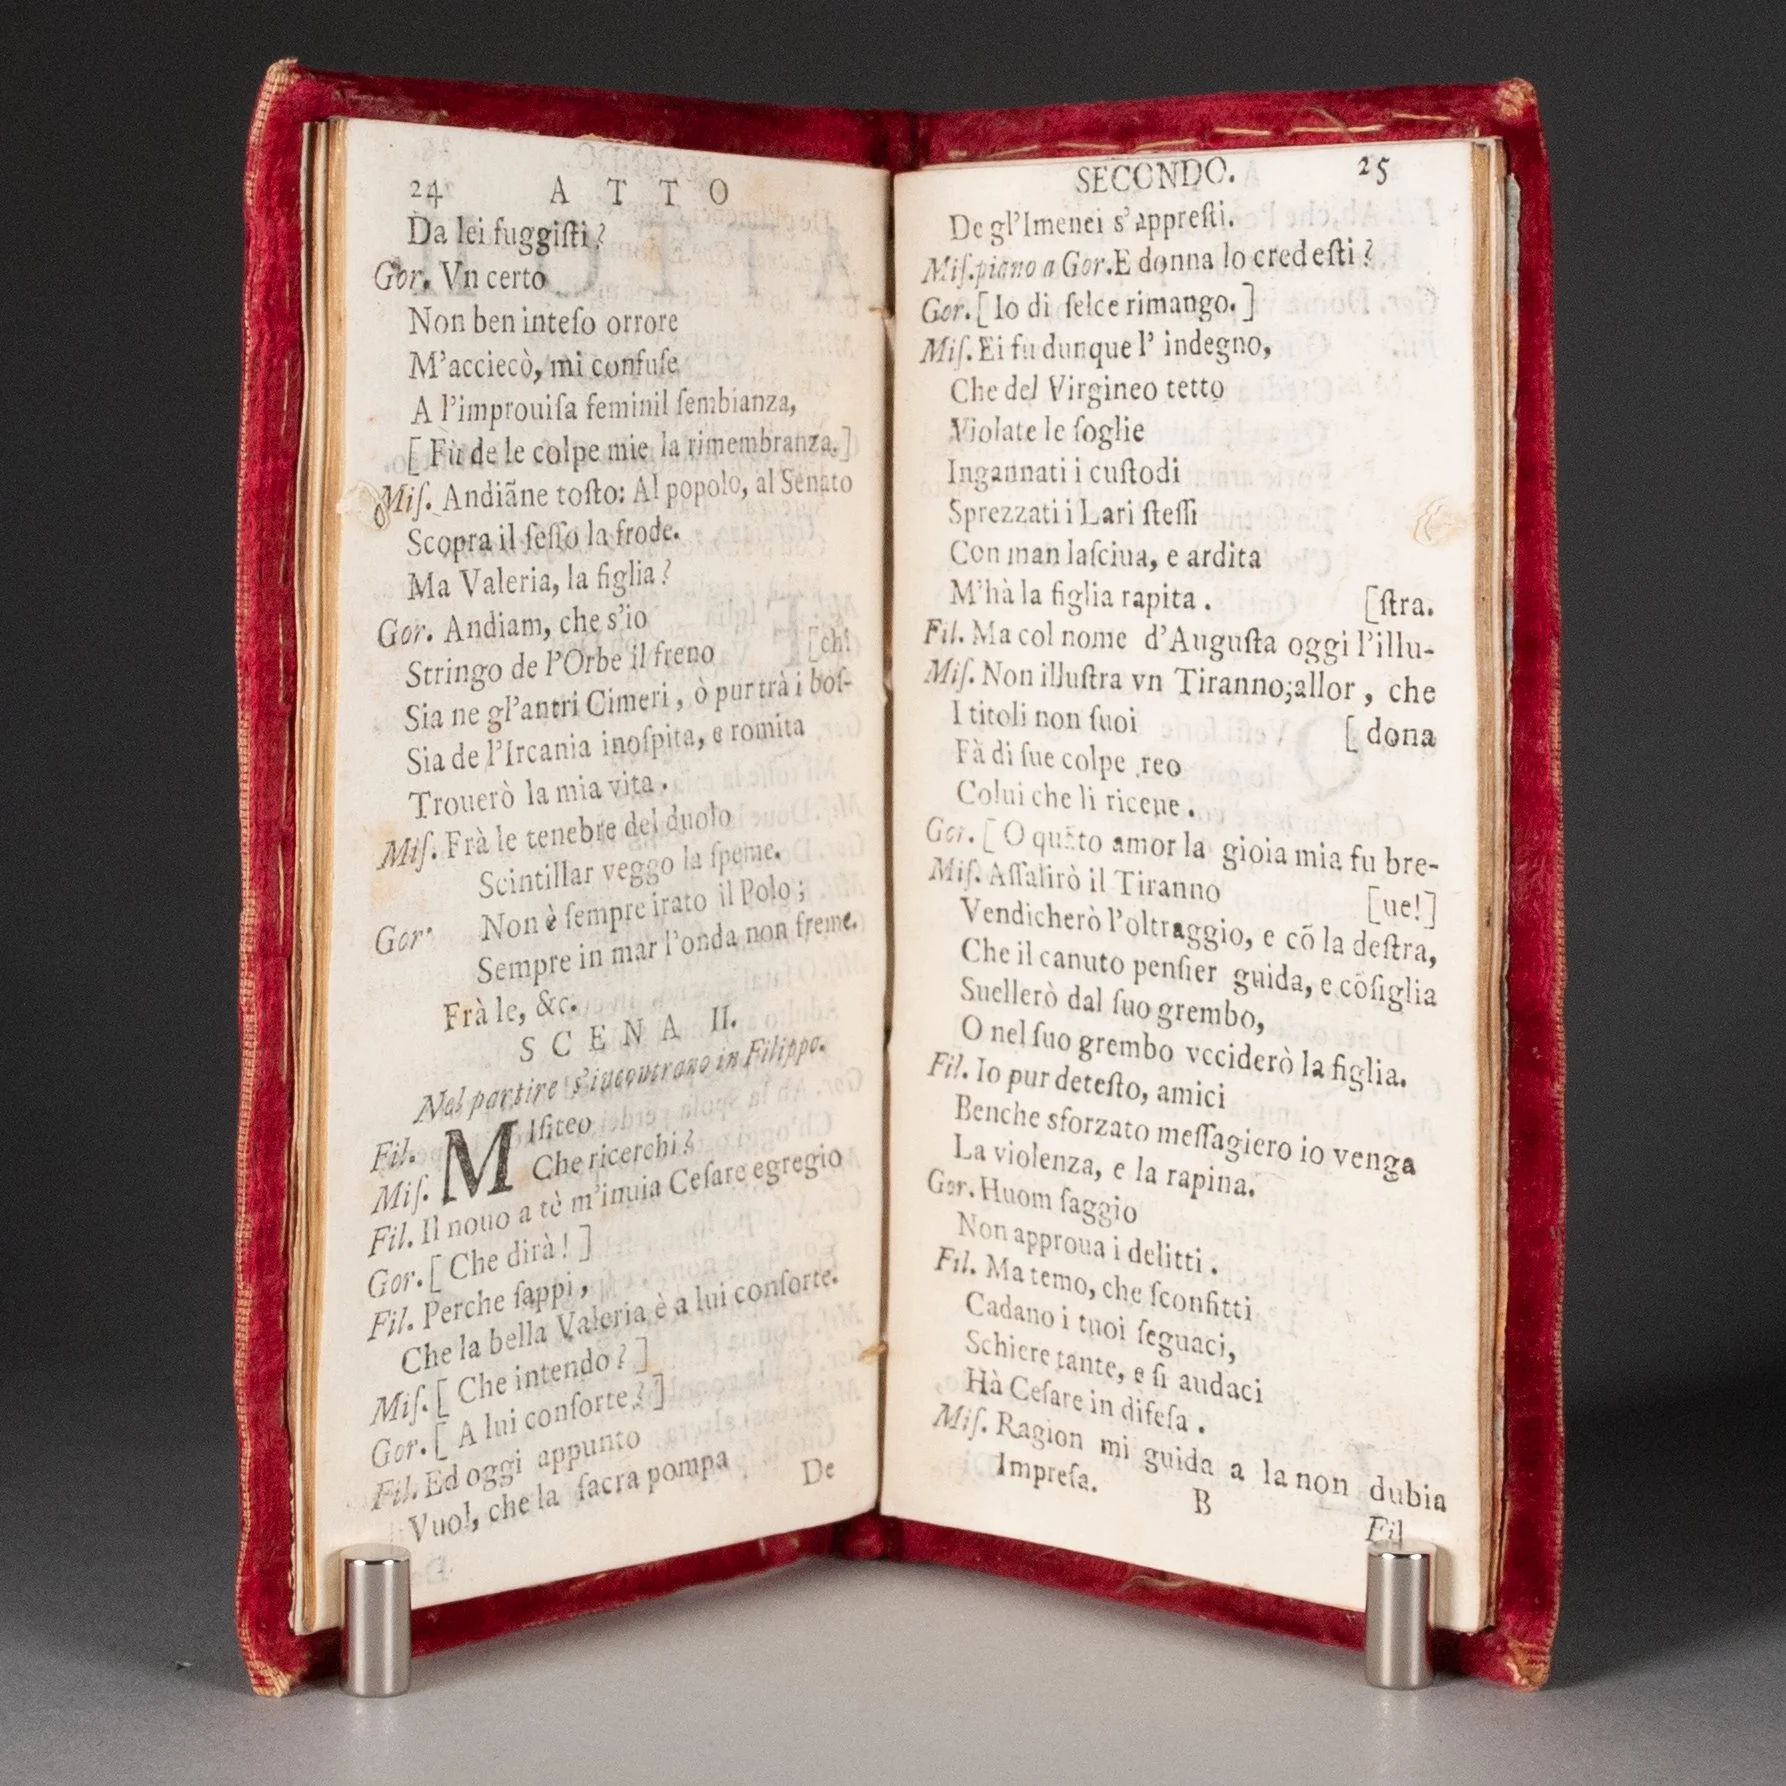 24 ATTO
Da lei fuggiſti?
Gor. Vn certo
Non ben inteſo orrore
M'acciecò, mi confuſe
A l'improuiſa feminil ſembianza,
[ Fù de le colpe mie la rimembranza.]
Miſ. Andiãne toſto: Al popolo, al Senato
Scopra il ſeſſo la frode.
Ma Valeria, la figlia?
Gor. Andiam, che s'io
Stringo de l'Orbe il freno [chi
Sia ne gl'antri Cimeri, ò pur trà i boſ-
Sia de l'Ircania inoſpita, e romita
Trouerò la mia vita.
Miſ. Frà le tenebre del duolo
Scintillar veggo la ſpeme.
Gor. Non è ſempre irato il Polo;
Sempre in mar l'onda non freme.
Frà le, &c.
SCENA II.
Nel partire s'incontrano in Filippo.
Fil. MIſiteo
Miſ. Che ricerchi?
Fil. Il nouo a tè m'inuia Ceſare egregio
Gor. [ Che dirà! ]
Fil. Perche ſappi,
Che la bella Valeria è a lui conſorte.
Miſ. [ Che intendo? ]
Gor. [ A lui conſorte? ]
Fil. Ed oggi appunto
Vuol, che la ſacra pompa
De
SECONDO. 25
De gl'Imenei s'appreſti.
Miſ. piano a Gor. E donna lo credeſti?
Gor. [ Io di ſelce rimango. ]
Miſ. Ei fu dunque l' indegno,
Che del Virgineo tetto
Violate le ſoglie
Ingannati i cuſtodi
Sprezzati i Lari ſteſſi
Con man laſciua, e ardita
M'hà la figlia rapita. [ſtra.
Fil. Ma col nome d'Auguſta oggi l'illu-
Miſ. Non illuſtra vn Tiranno; allor, che
I titoli non ſuoi [ dona
Fà di ſue colpe reo
Colui che li riceue.
Gor. [ O quãto amor la gioia mia fu bre-
Miſ. Aſſalirò il Tiranno [ue!]
Vendicherò l'oltraggio, e cõ la deſtra,
Che il canuto penſier guida, e cõſiglia
Suellerò dal ſuo grembo,
O nel ſuo grembo vcciderò la figlia.
Fil. Io pur deteſto, amici
Benche sforzato meſſagiero io venga
La violenza, e la rapina.
Gor. Huom ſaggio
Non approua i delitti.
Fil. Ma temo, che ſconfitti
Cadano i tuoi ſeguaci,
Schiere tante, e ſi audaci
Hà Ceſare in difeſa.
Miſ. Ragion mi guida a la non dubia
Impreſa.
B
Fil